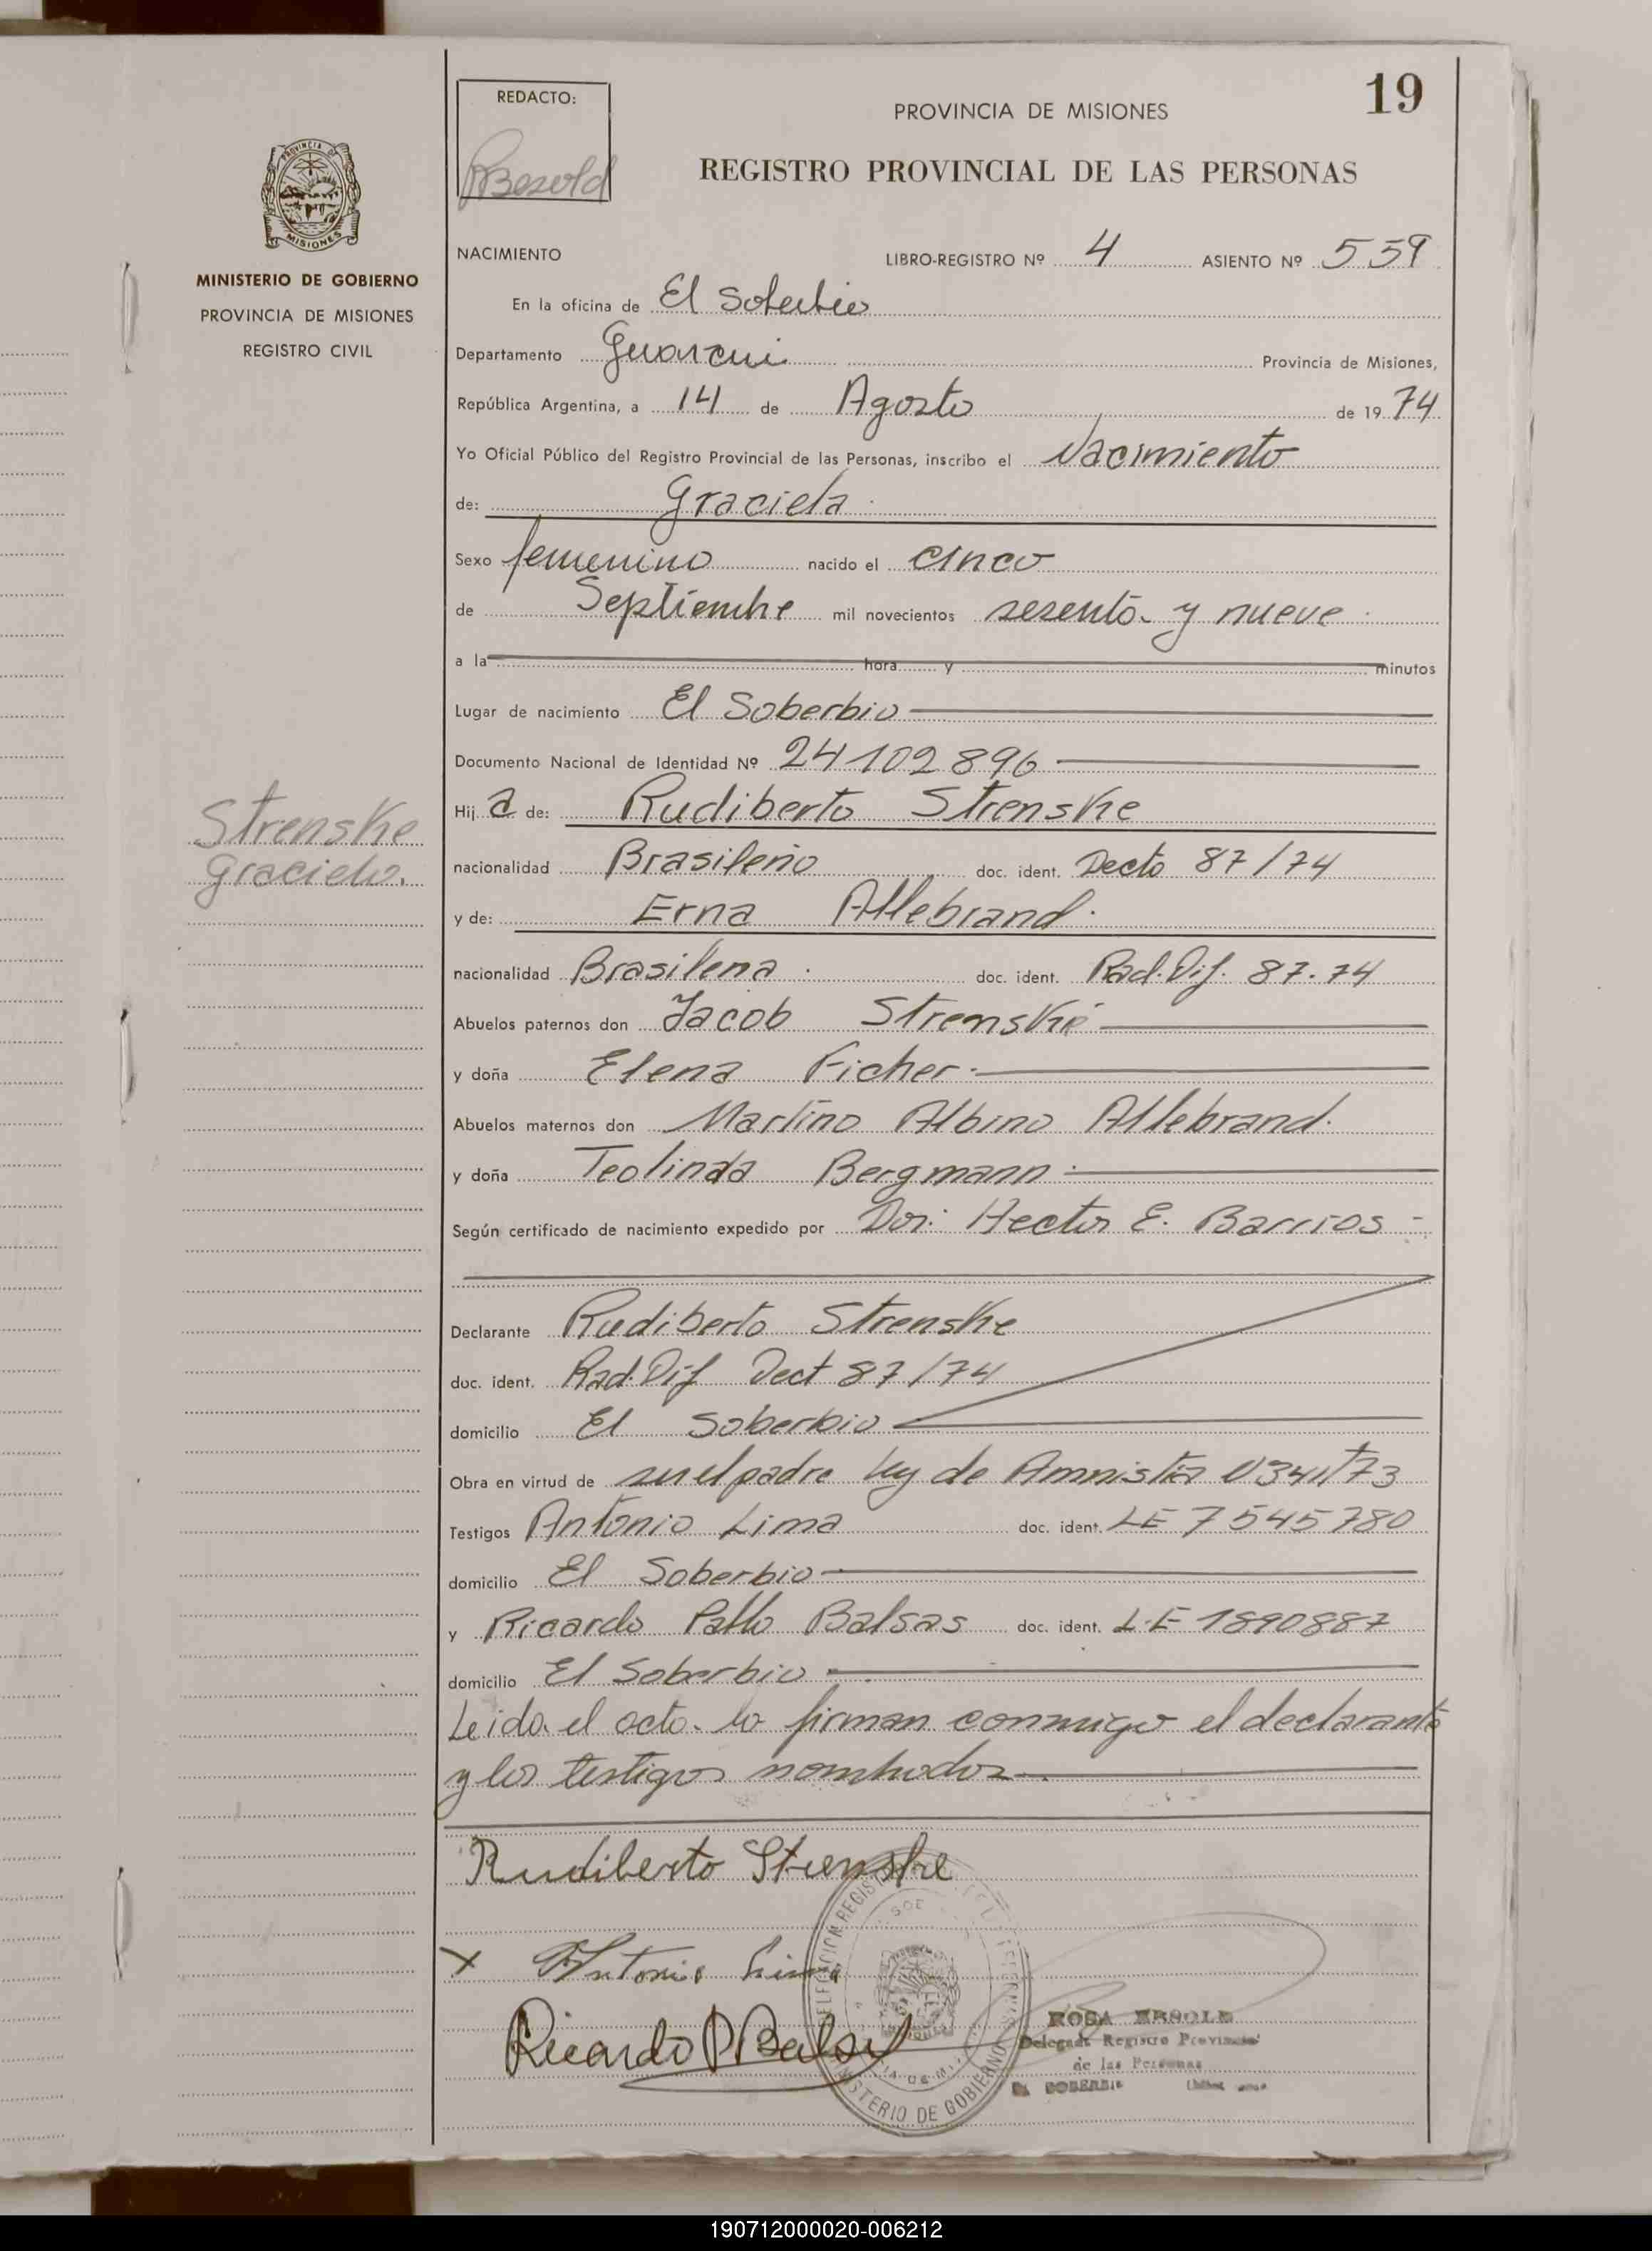 19
REDACTO:
PROVINCIA DE MISIONES
REGISTRO PROVINCIAL DE LAS PERSONAS
PROVINCIA DE
MISIONES
MINISTERIO DE GOBIERNO
PROVINCIA DE MISIONES
REGISTRO CIVIL
NACIMIENTO LIBRO-REGISTRO Nº 4 ASIENTO Nº 559
En la oficina de El Soberbio
Departamento Guarani Provincia de Misiones,
República Argentina, a 14 de Agosto de 1974
Yo Oficial Público del Registro Provincial de las Personas, inscribo el Nacimiento
de: Graciela
Sexo femenino nacido el cinco
de Septiembre mil novecientos sesenta y nueve
a la hora y minutos
Lugar de nacimiento El Soberbio
Documento Nacional de Identidad Nº 24102896
Hija de: Rudiberto Strenske
Strenske
Graciela.
nacionalidad Brasileño doc. ident. Decto 87/74
y de: Erna Allebrand.
nacionalidad Brasilena doc. ident. Rad. Dif. 87.74
Abuelos paternos don Jacob Strenske
y doña Elena Ficher.
Abuelos maternos don Martino Albino Allebrand.
y doña Teolinda Bergmann
Según certificado de nacimiento expedido por Dor: Hector E. Barrios
Declarante Rudiberto Strenske
doc. ident. Rad. Dif Dect 87/74
domicilio El Soberbio
Obra en virtud de ser el padre Ley de Amnistia 0341/73
Testigos Antonio Lima doc. ident. LE 7545780
domicilio El Soberbio
y Ricardo Pablo Balsas doc. ident. L.E 1890887
domicilio El Soberbio
Leida el acto. lo firman conmigo el declarante
y los testigos nombrados
Rudiberto Strenske
x Antonio Lima
Ricardo P Balsa
MINISTERIO DE GOBIERNO
ROSA
Delegada Registro Provincial
de las Personas
EL SOBERBIO
190712000020-006212